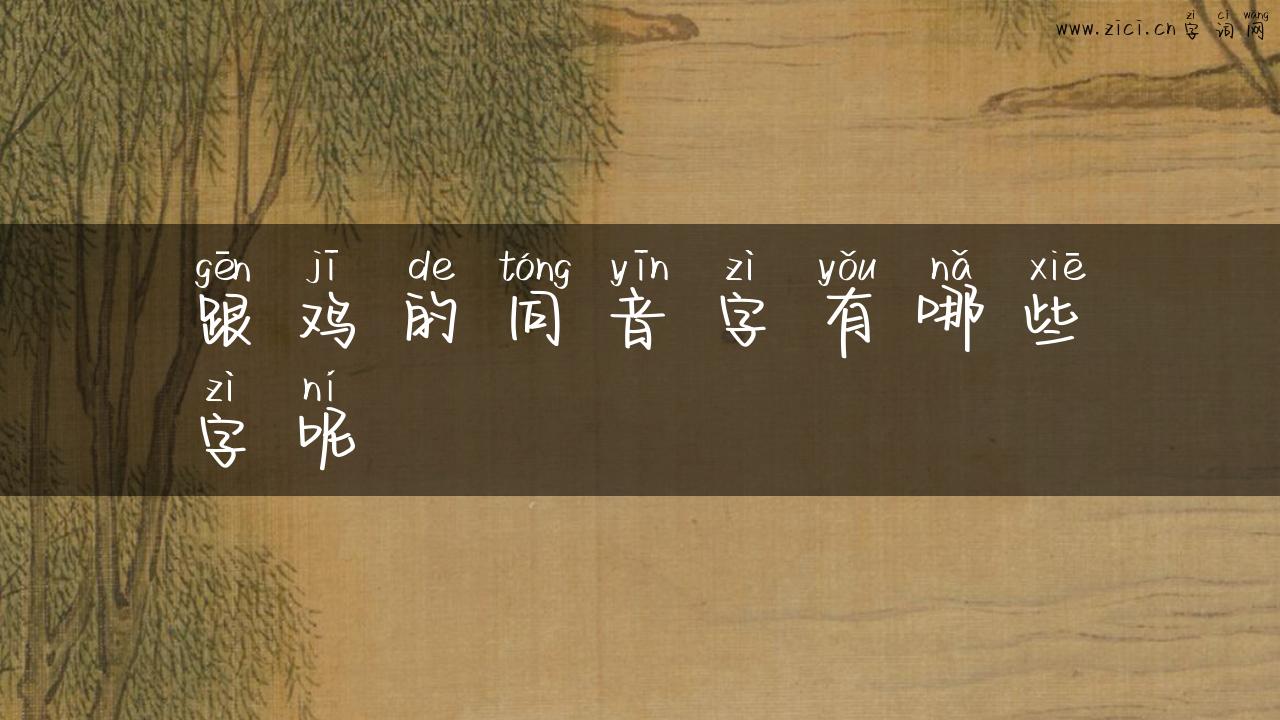 zì cí wǎng
www.zici.cn字词网
gēn jī de tóng yīn zì yǒu nǎ xiē
跟鸡的同音字有哪些
zì ní
字呢